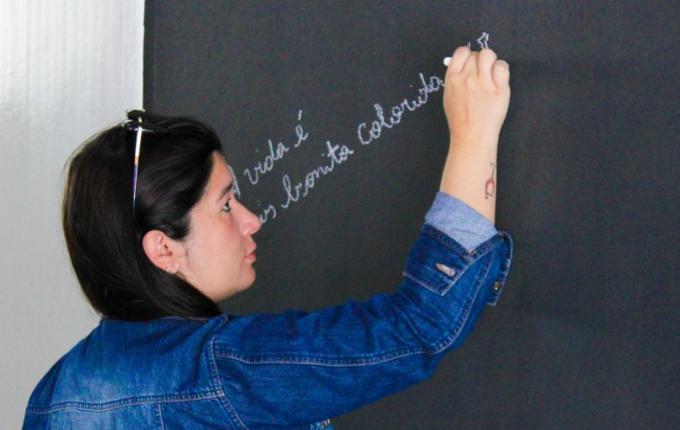 vida é
bonita colorida